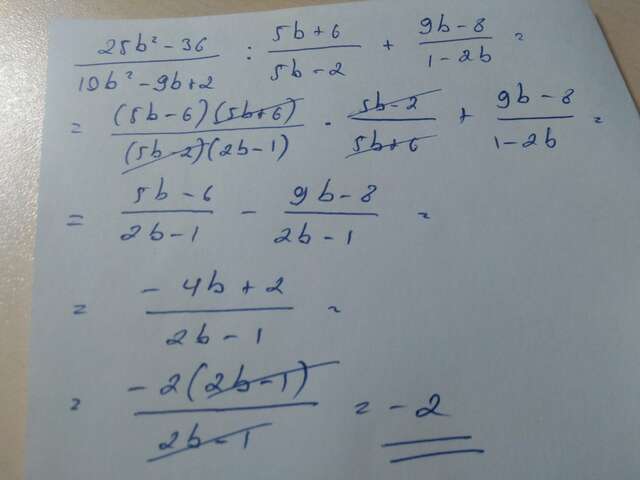 (25b² - 36)/(10b² - 9b + 2) : (5b + 6)/(5b - 2) + (9b - 8)/(1 - 2b) =
= (5b - 6)(5b + 6)/(5b - 2)(2b - 1) · (5b - 2)/(5b + 6) + (9b - 8)/(1 - 2b) =
= (5b - 6)/(2b - 1) - (9b - 8)/(2b - 1) =
= (-4b + 2)/(2b - 1) =
= -2(2b - 1)/(2b - 1) = -2